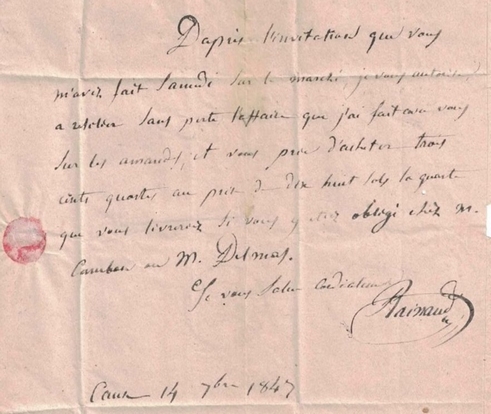 D'après l'invitation que vous
m'avez fait Samedi sur le marché, je vous autorise
a résilier sans perte l'affaire que j'ai fait avec vous
sur les amandes, et vous prie d'acheter trois
cents quartes au prix de dix huit sols la quarte
que vous livrerez si vous y etez obligé chez m.
Cambon ou M. Delmas.
Je vous salue cordialement
Rainaud
14 7bre 1847